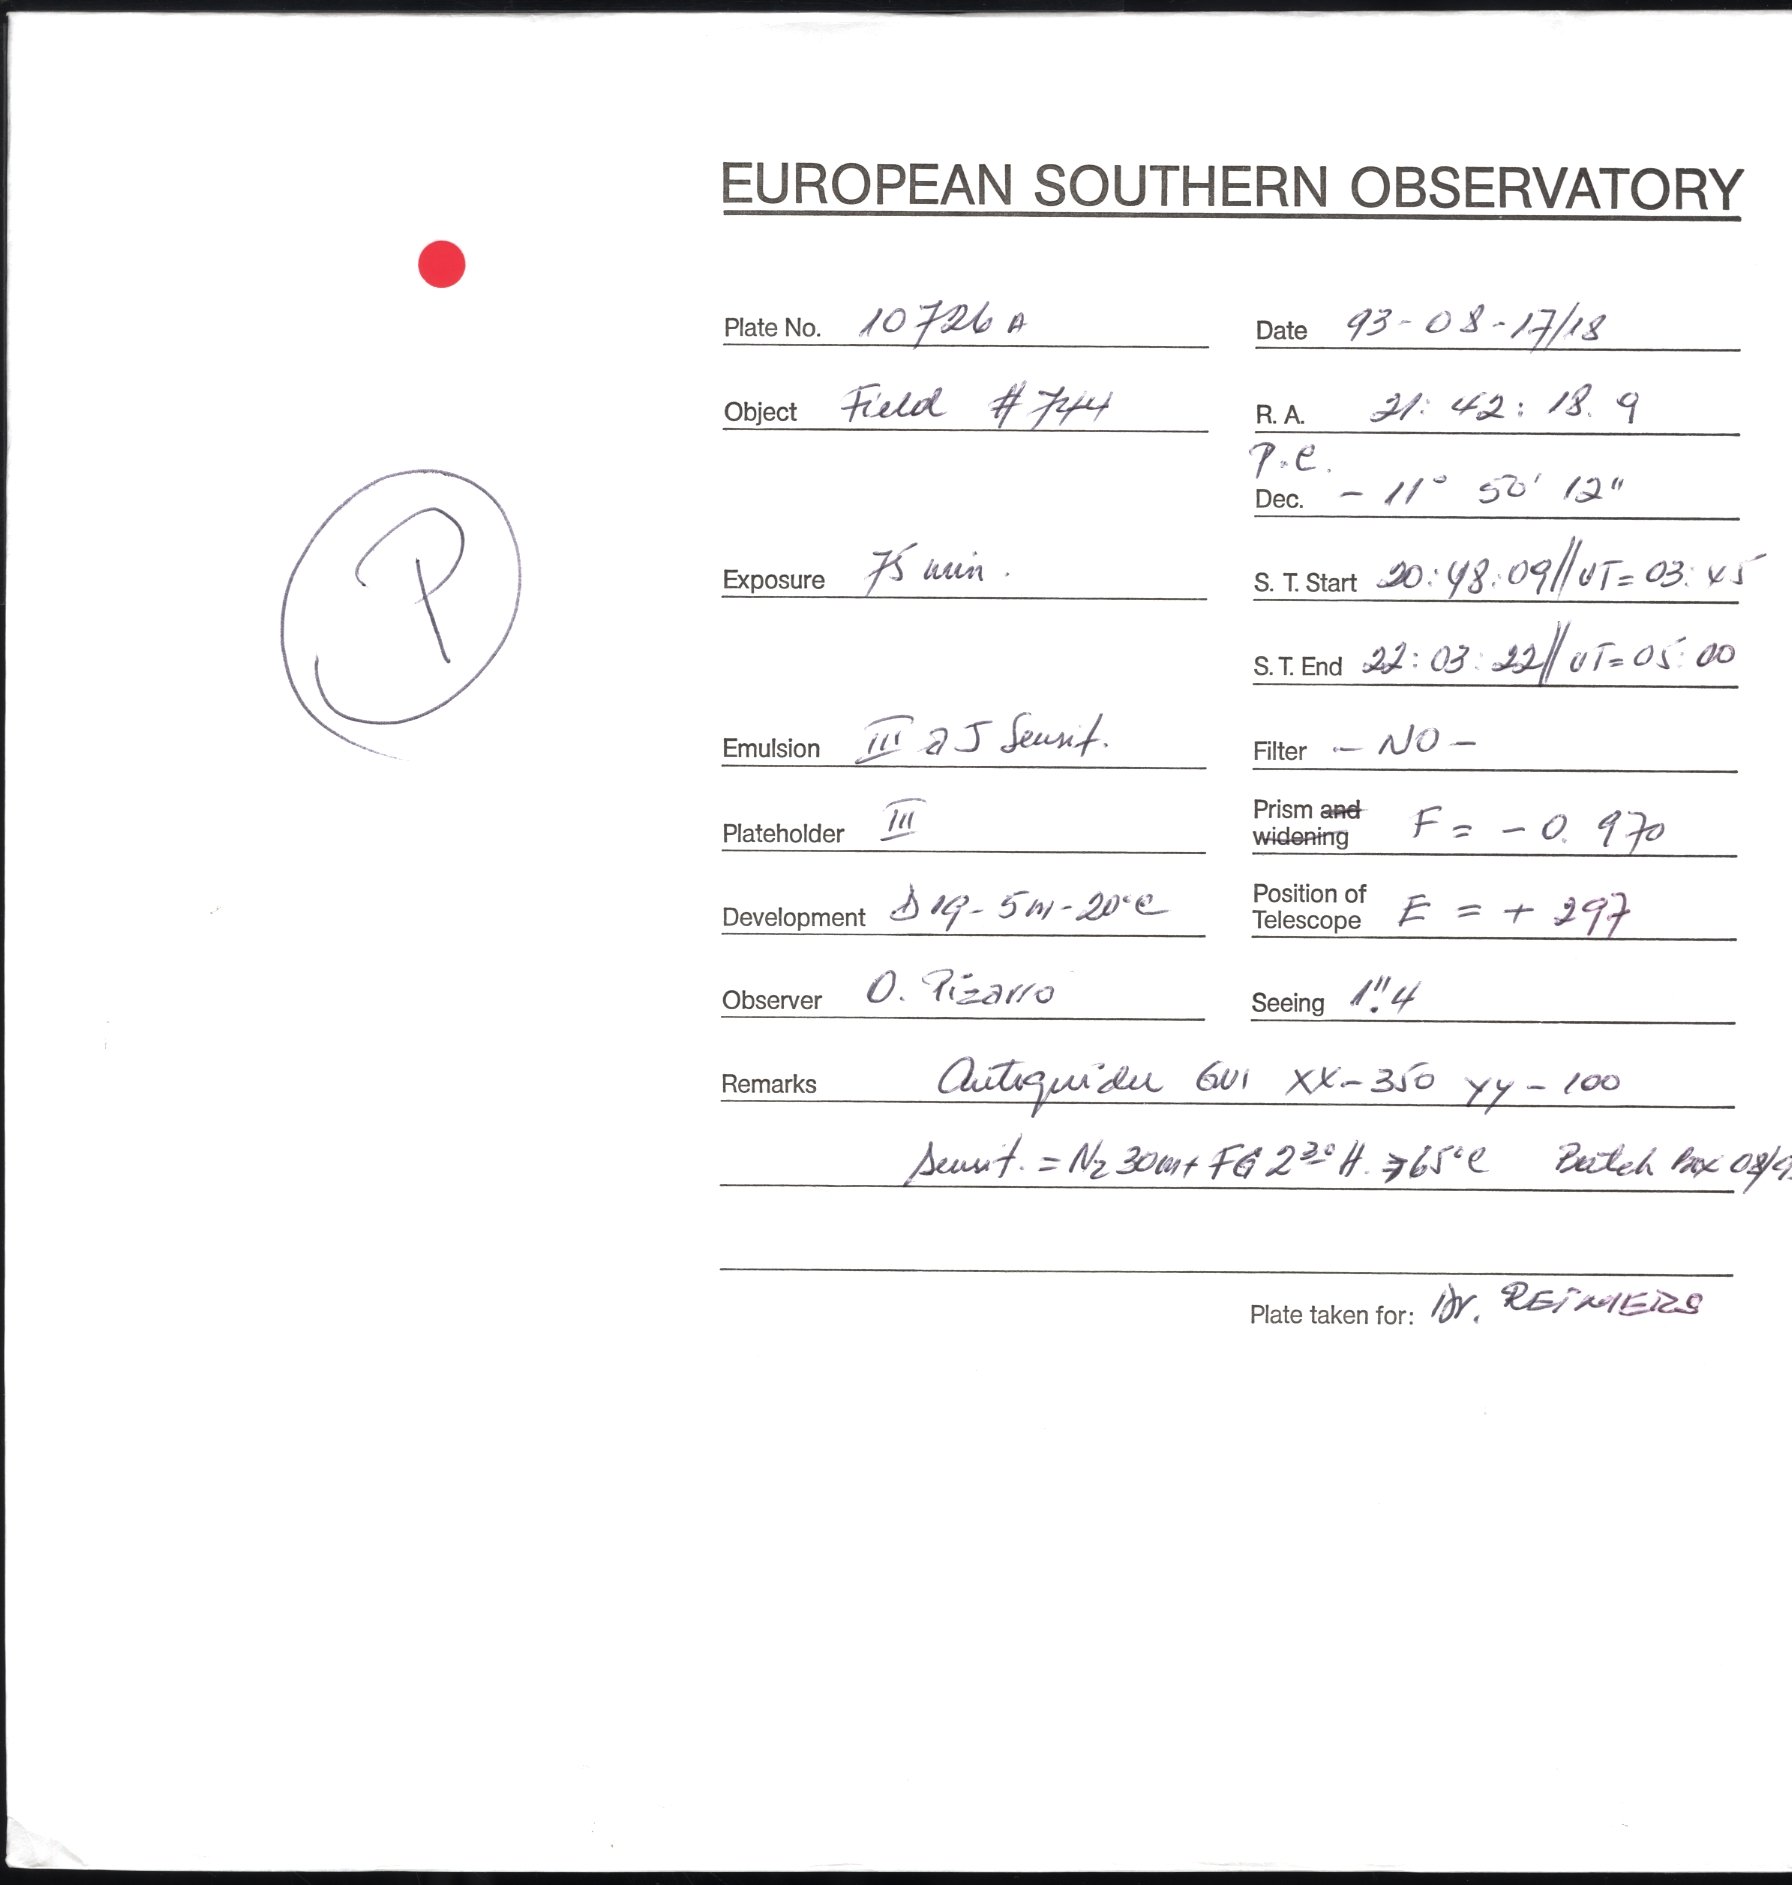 EUROPEAN SOUTHERN OBSERVATORY
Plate No. 10726 A Date 93-08-17/18
Object Field # 744 R. A. 21: 42: 18. 9
P.C.
Dec. - 11° 50' 12"
Exposure 75 min. S. T. Start 20:48:09// UT= 03:45
S. T. End 22:03:22// UT= 05:00
Emulsion III a J Sensit. Filter - NO -
Plateholder III Prism and widening F = - 0. 970
Development D19-5m-20°C Position of Telescope E = + 297
Observer O. Pizarro Seeing 1".4
Remarks Autoguider GUI XX-350 YY-100
Sensit. = N2 30m+ FG 2 30 H. 65°C Batch Box 08/
Plate taken for: Dr. REIMERS
P